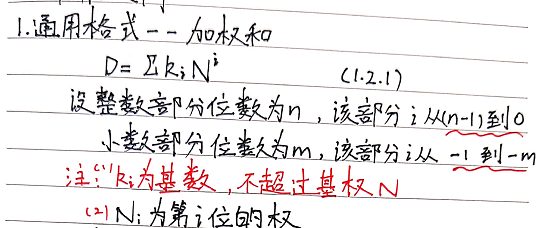 1.通用格式--加权和
D=ΣkᵢNⁱ (1.2.1)
设整数部分位数为n,该部分i从(n-1)到0
小数部分位数为m,该部分i从-1到-m
注:(1)kᵢ为基数,不超过基权N
(2)Nᵢ为第i位的权